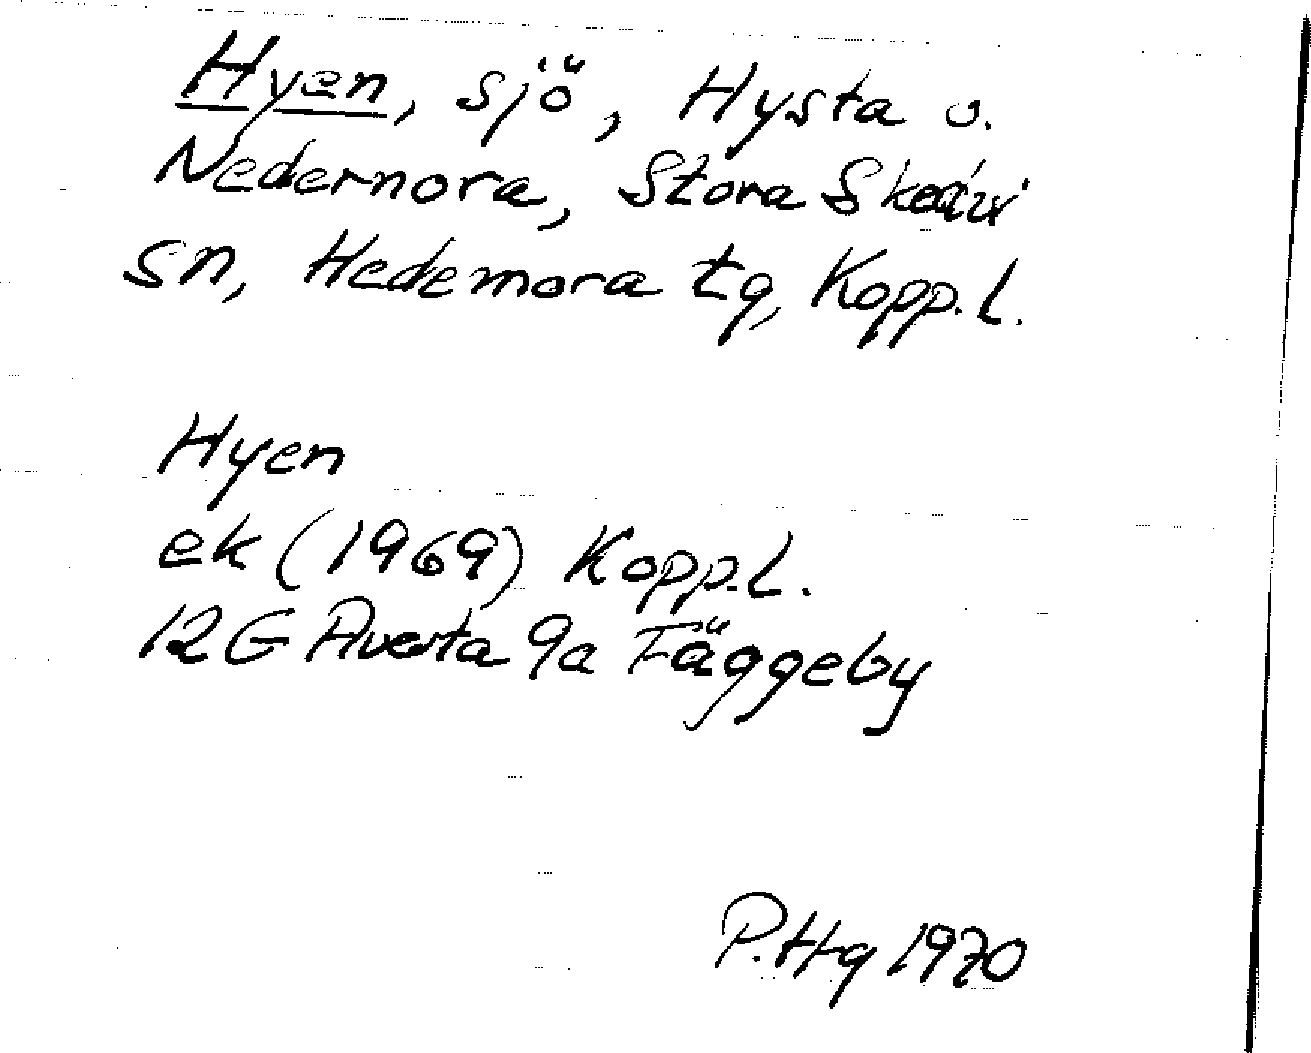 Hyen, sjö, Hysta o.
Nedernora, Stora Skedvi
sn, Hedemora tg, Kopp. l.
Hyen
ek (1969) Kopp. L.
12 G Avesta 9a Fäggeby
P. Hg 1970